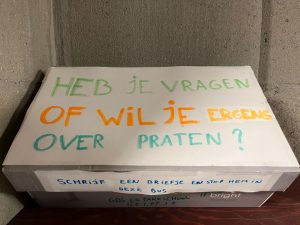 HEB JE VRAGEN
OF WIL JE ERGENS
OVER PRATEN?
SCHRIJF EEN BRIEFJE EN STOP HEM IN
DEZE BUS
bright